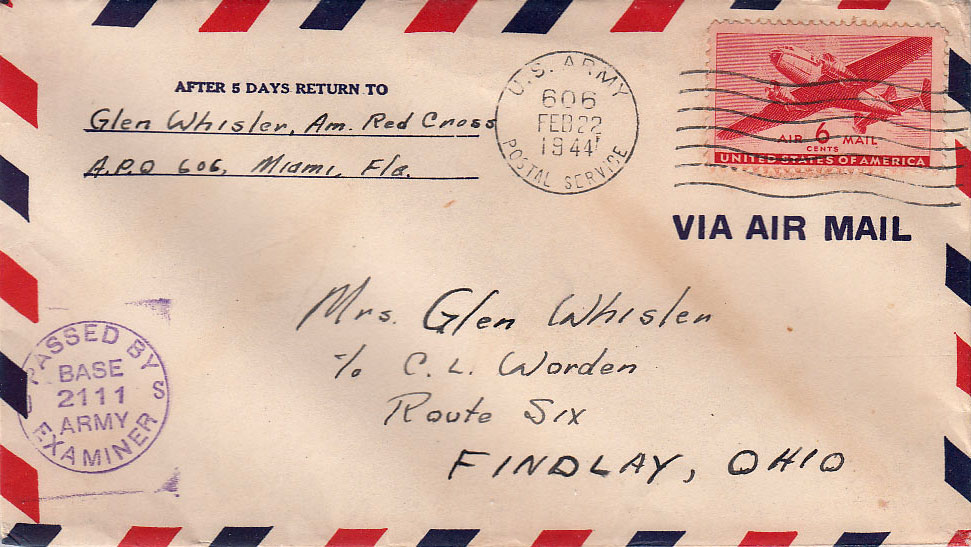 AFTER 5 DAYS RETURN TO
Glen Whisler, Am. Red Cross
A.P.O 606, Miami, Fla.
U.S. ARMY
606
FEB 22
1944
POSTAL SERVICE
AIR 6 MAIL
CENTS
UNITED STATES OF AMERICA
VIA AIR MAIL
Mrs. Glen Whisler
% C. L. Worden
Route Six
FINDLAY, OHIO
PASSED BY
BASE
2111
ARMY
EXAMINER
S